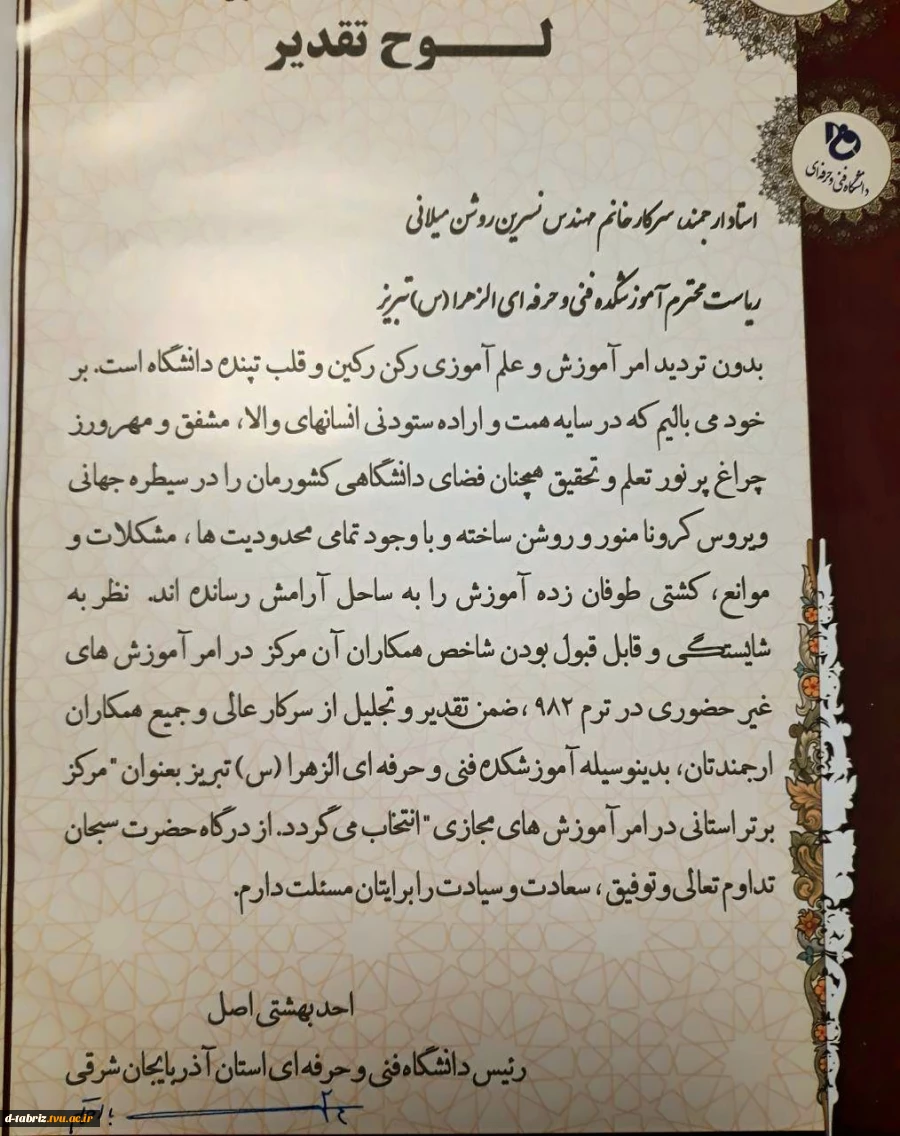 لوح تقدیر
دانشگاه فنی و حرفه‌ای
استاد ارجمند، سرکار خانم مهندس نسرین روشن میلانی
ریاست محترم آموزشکده فنی و حرفه ای الزهرا (س) تبریز
بدون تردید امر آموزش و علم آموزی رکن رکین و قلب تپنده دانشگاه است. بر
خود می بالیم که در سایه همت و اراده ستودنی انسانهای والا، مشفق و مهرورز
چراغ پر نور تعلم و تحقیق همچنان فضای دانشگاهی کشورمان را در سیطره جهانی
ویروس کرونا منور و روشن ساخته و با وجود تمامی محدودیت ها ، مشکلات و
موانع، کشتی طوفان زده آموزش را به ساحل آرامش رسانده اند. نظر به
شایستگی و قابل قبول بودن شاخص همکاران آن مرکز در امر آموزش های
غیر حضوری در ترم ۹۸۲ ،ضمن تقدیر و تجلیل از سرکار عالی و جمیع همکاران
ارجمندتان، بدینوسیله آموزشکده فنی و حرفه ای الزهرا (س) تبریز بعنوان "مرکز
برتر استانی در امر آموزش های مجازی" انتخاب می گردد. از درگاه حضرت سبحان
تداوم تعالی و توفیق ، سعادت و سیادت را برایتان مسئلت دارم.
احد بهشتی اصل
رئیس دانشگاه فنی و حرفه ای استان آذربایجان شرقی
d-tabriz.tvu.ac.ir